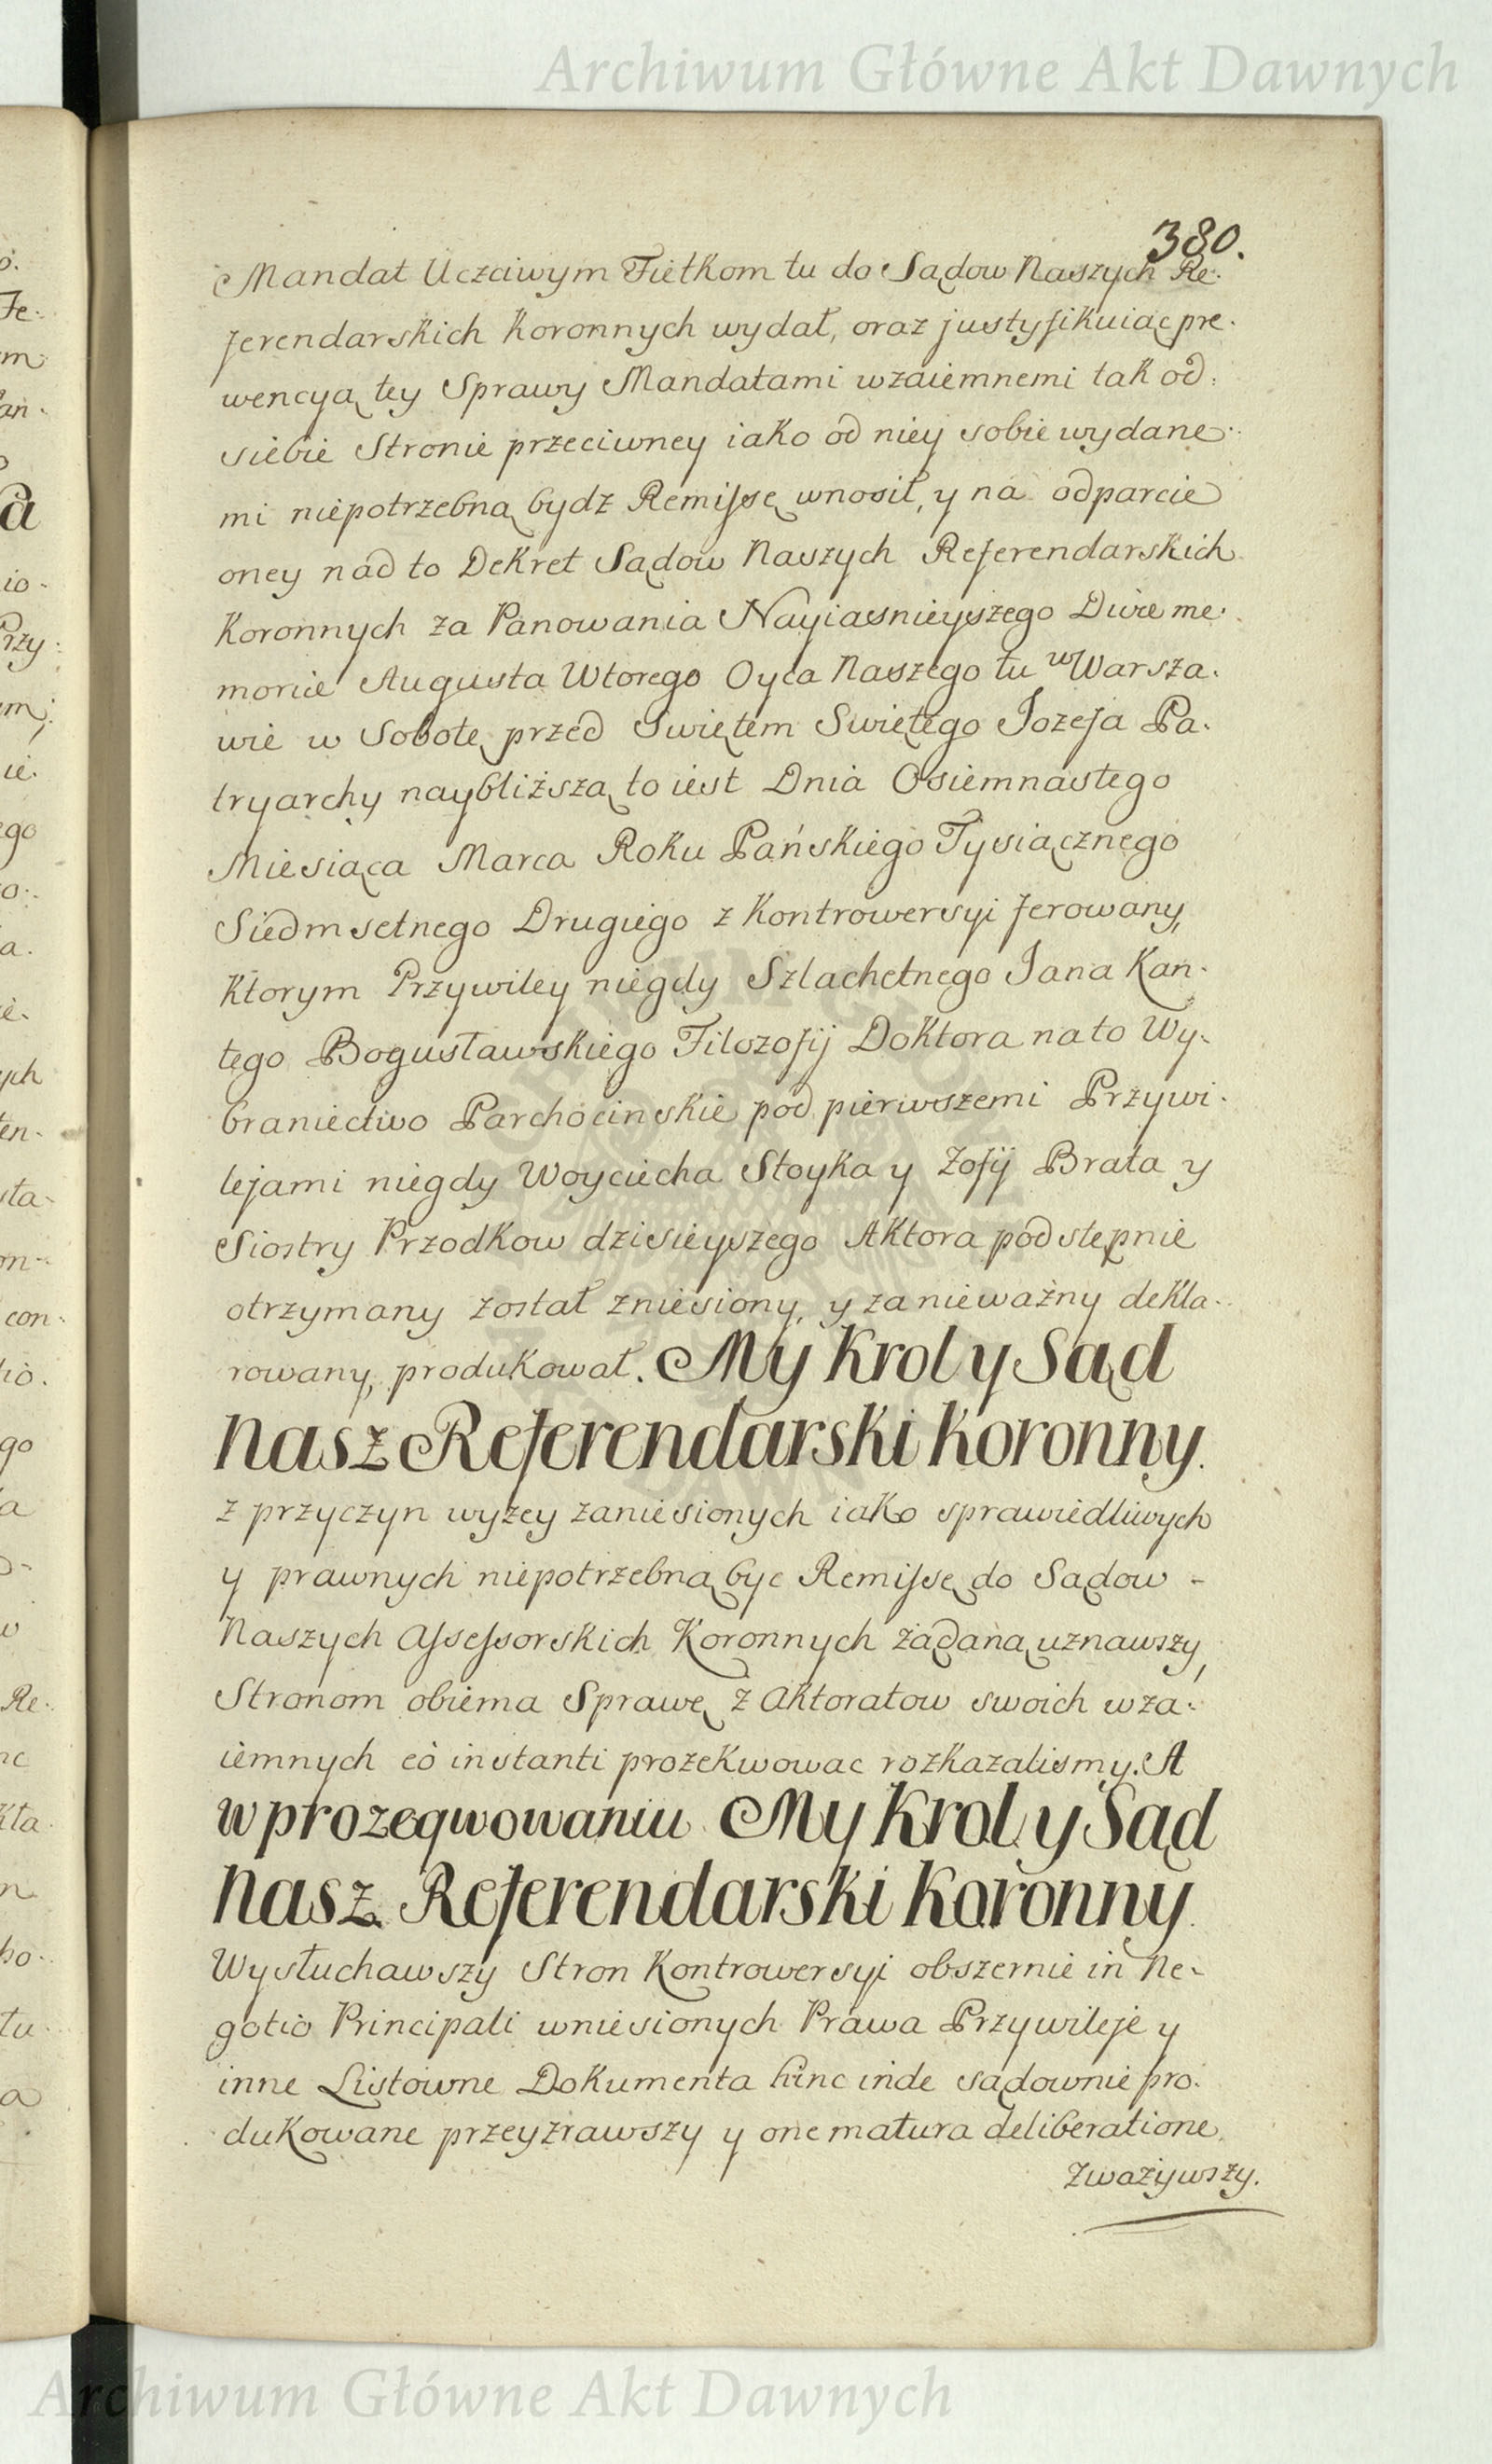 Archiwum Główne Akt Dawnych
380.
Mandat Uczciwym Fietkom tu do Sądow Naszych Re-
ferendarskich Koronnych wydał, oraz justyfikuiąc pre-
wencyą tey Sprawy Mandatami wzaiemnemi tak od
siebie Stronie przeciwney iako od niey sobie wydane-
mi niepotrzebną bydz Remissę wnosił, y na odparcie
oney nad to Dekret Sądow Naszych Referendarskich
Koronnych za Panowania Nayiasnieyszego Divæ me-
moriæ Augusta Wtorego Oyca Naszego tu w Warsza-
wie w Sobotę przed Swiętem Swiętego Jozefa Pa-
tryarchy naybliższą to iest Dnia Osiemnastego
Miesiąca Marca Roku Pańskiego Tysiącznego
Siedmsetnego Drugiego z Kontrowersyi ferowany,
Ktorym Przywiley niegdy Szlachetnego Jana Kan-
tego Bogusławskiego Filozofij Doktora na to Wy-
braniectwo Parchocinskie pod pierwszemi Przywi-
lejami niegdy Woyciecha Stoyka y Zofij Brata y
Siostry Przodkow dzisieyszego Aktora podstępnie
otrzymany został zniesiony, y za nieważny dekla-
rowany, produkował. My Krol y Sąd
Nasz Referendarski Koronny.
z przyczyn wyżey zaniesionych iako sprawiedliwych
y prawnych niepotrzebną byc Remissę do Sądow -
Naszych Assessorskich Koronnych żądaną uznawszy,
Stronom obiema Sprawę z Aktoratow swoich wza-
iemnych eo instanti prozekwowac rozkazalismy. A
w prozeqwowaniu My Krol y Sąd
Nasz Referendarski Koronny
Wysłuchawszy Stron Kontrowersyi obszernie in Ne-
gotio Principali wniesionych Prawa Przywileje y
inne Listowne Dokumenta hinc inde sądownie pro-
dukowane przeyzrawszy y one matura deliberatione
Zważywszy.
Archiwum Główne Akt Dawnych